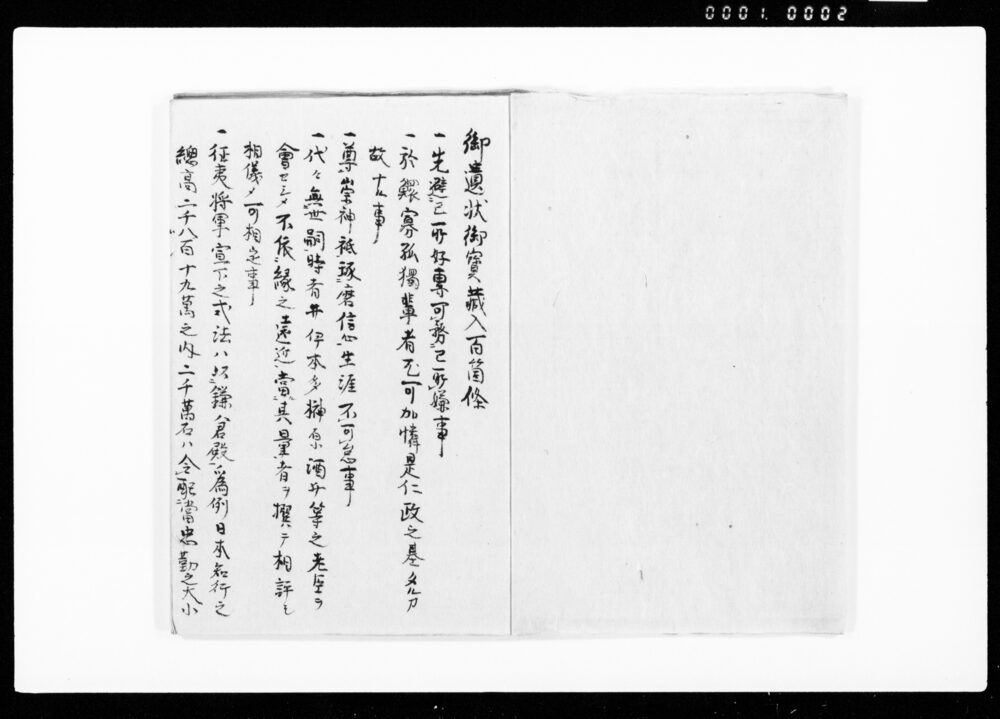 0001. 0002
御遺状御寳藏入百箇條
一先避己所好專可務己所嫌事
一於鰥寡孤獨輩者尤可加憐是仁政之基タルカ
故ナル事
一尊崇神祇琢磨信心生涯不可怠事
一代々無世嗣時者井伊本多榊原酒井等之老臣ヲ
會セシメ不依縁之遠近當其量者ヲ撰テ相評シ
相儀メ可相定事
一征夷将軍宣下之式法ハ鎌倉殿為例日本知行之
總高二千八百十九萬之内二千萬石ハ令配當忠勤之大小